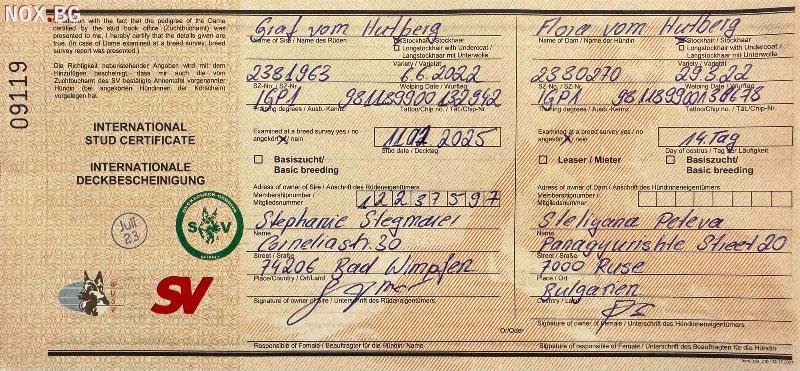 NOX.BG
In addition with the fact that the pedigree of the Dame
certified by the stud book office (Zuchtbuchamt) was
presented to me, I hereby certify that the details given are
true. (In case of Dame examined at a breed survey, breed
survey report was presented.)
Die Richtigkeit nebenstehender Angaben wird mit dem
Hinzufügen bescheinigt, dass mir auch die vom
Zuchtbuchamt des SV bestätigte Ahnentafel vorgenannter
Hündin (bei angekörten Hündinnen der Körschein)
vorgelegen hat.
09119
INTERNATIONAL
STUD CERTIFICATE
INTERNATIONALE
DECKBESCHEINIGUNG
Juli
23
SV
WUSV
SV
Graf vom Hutberg
Name of Sire / Name des Rüden
Stockhaar/Stockhaar
Longstockhair with Undercoat /
Langstockhaar mit Unterwolle
Variety / Varietät
2381963
6.6.2022
SZ-No. / SZ-Nr.
Welping Date / Wurftag
IGP1
981189900132942
Training degrees / Ausb.-Kennz.
Tattoo/Chip-No. / Tät./Chip-Nr.
Examined at a breed survey yes / no
angekört / nein
11.02.2025
Stud date / Decktag
Basiszucht/
Basic breeding
Adress of owner of Sire / Anschrift des Rüdeneigentümers
Membershipnumber /
Mitgliedsnummer
12237597
Stephanie Stegmaier
Name
Corneliastr. 30
Street / Straße
74206 Bad Wimpfen
Place/Country / Ort/Land
Signature of owner of Sire / Unterschrift des Rüdeneigentümers
Or/Oder
Responsible of Female / Beauftragter für die Hündin/ Name
Flora vom Hutberg
Name of Dam / Name der Hündin
Stockhaar/Stockhaar
Longstockhair with Undercoat /
Langstockhaar mit Unterwolle
Variety / Varietät
2380270
29.3.22
SZ-No. / SZ-Nr.
Welping Date / Wurftag
IGP1
Training degrees / Ausb.-Kennz.
Tattoo/Chip-No. / Tät./Chip-Nr.
Examined at a breed survey yes / no
angekört / nein
14. Tag
Day of oestrus / Tag der Läufigkeit
Leaser / Mieter
Basiszucht/
Basic breeding
Adress of owner of Dam / Anschrift des Hündinneneigentümers
Membershipnumber /
Mitgliedsnummer
Steliyana Peteva
Name
Panagyurishte Street 20
Street / Straße
7000 Ruse
Place / Ort
Bulgarien
Country / Land
Signature of owner of Female / Unterschrift des Hündinneneigentümers
Signature of responsible of Female / Unterschrift des Beauftragten für die Hündin